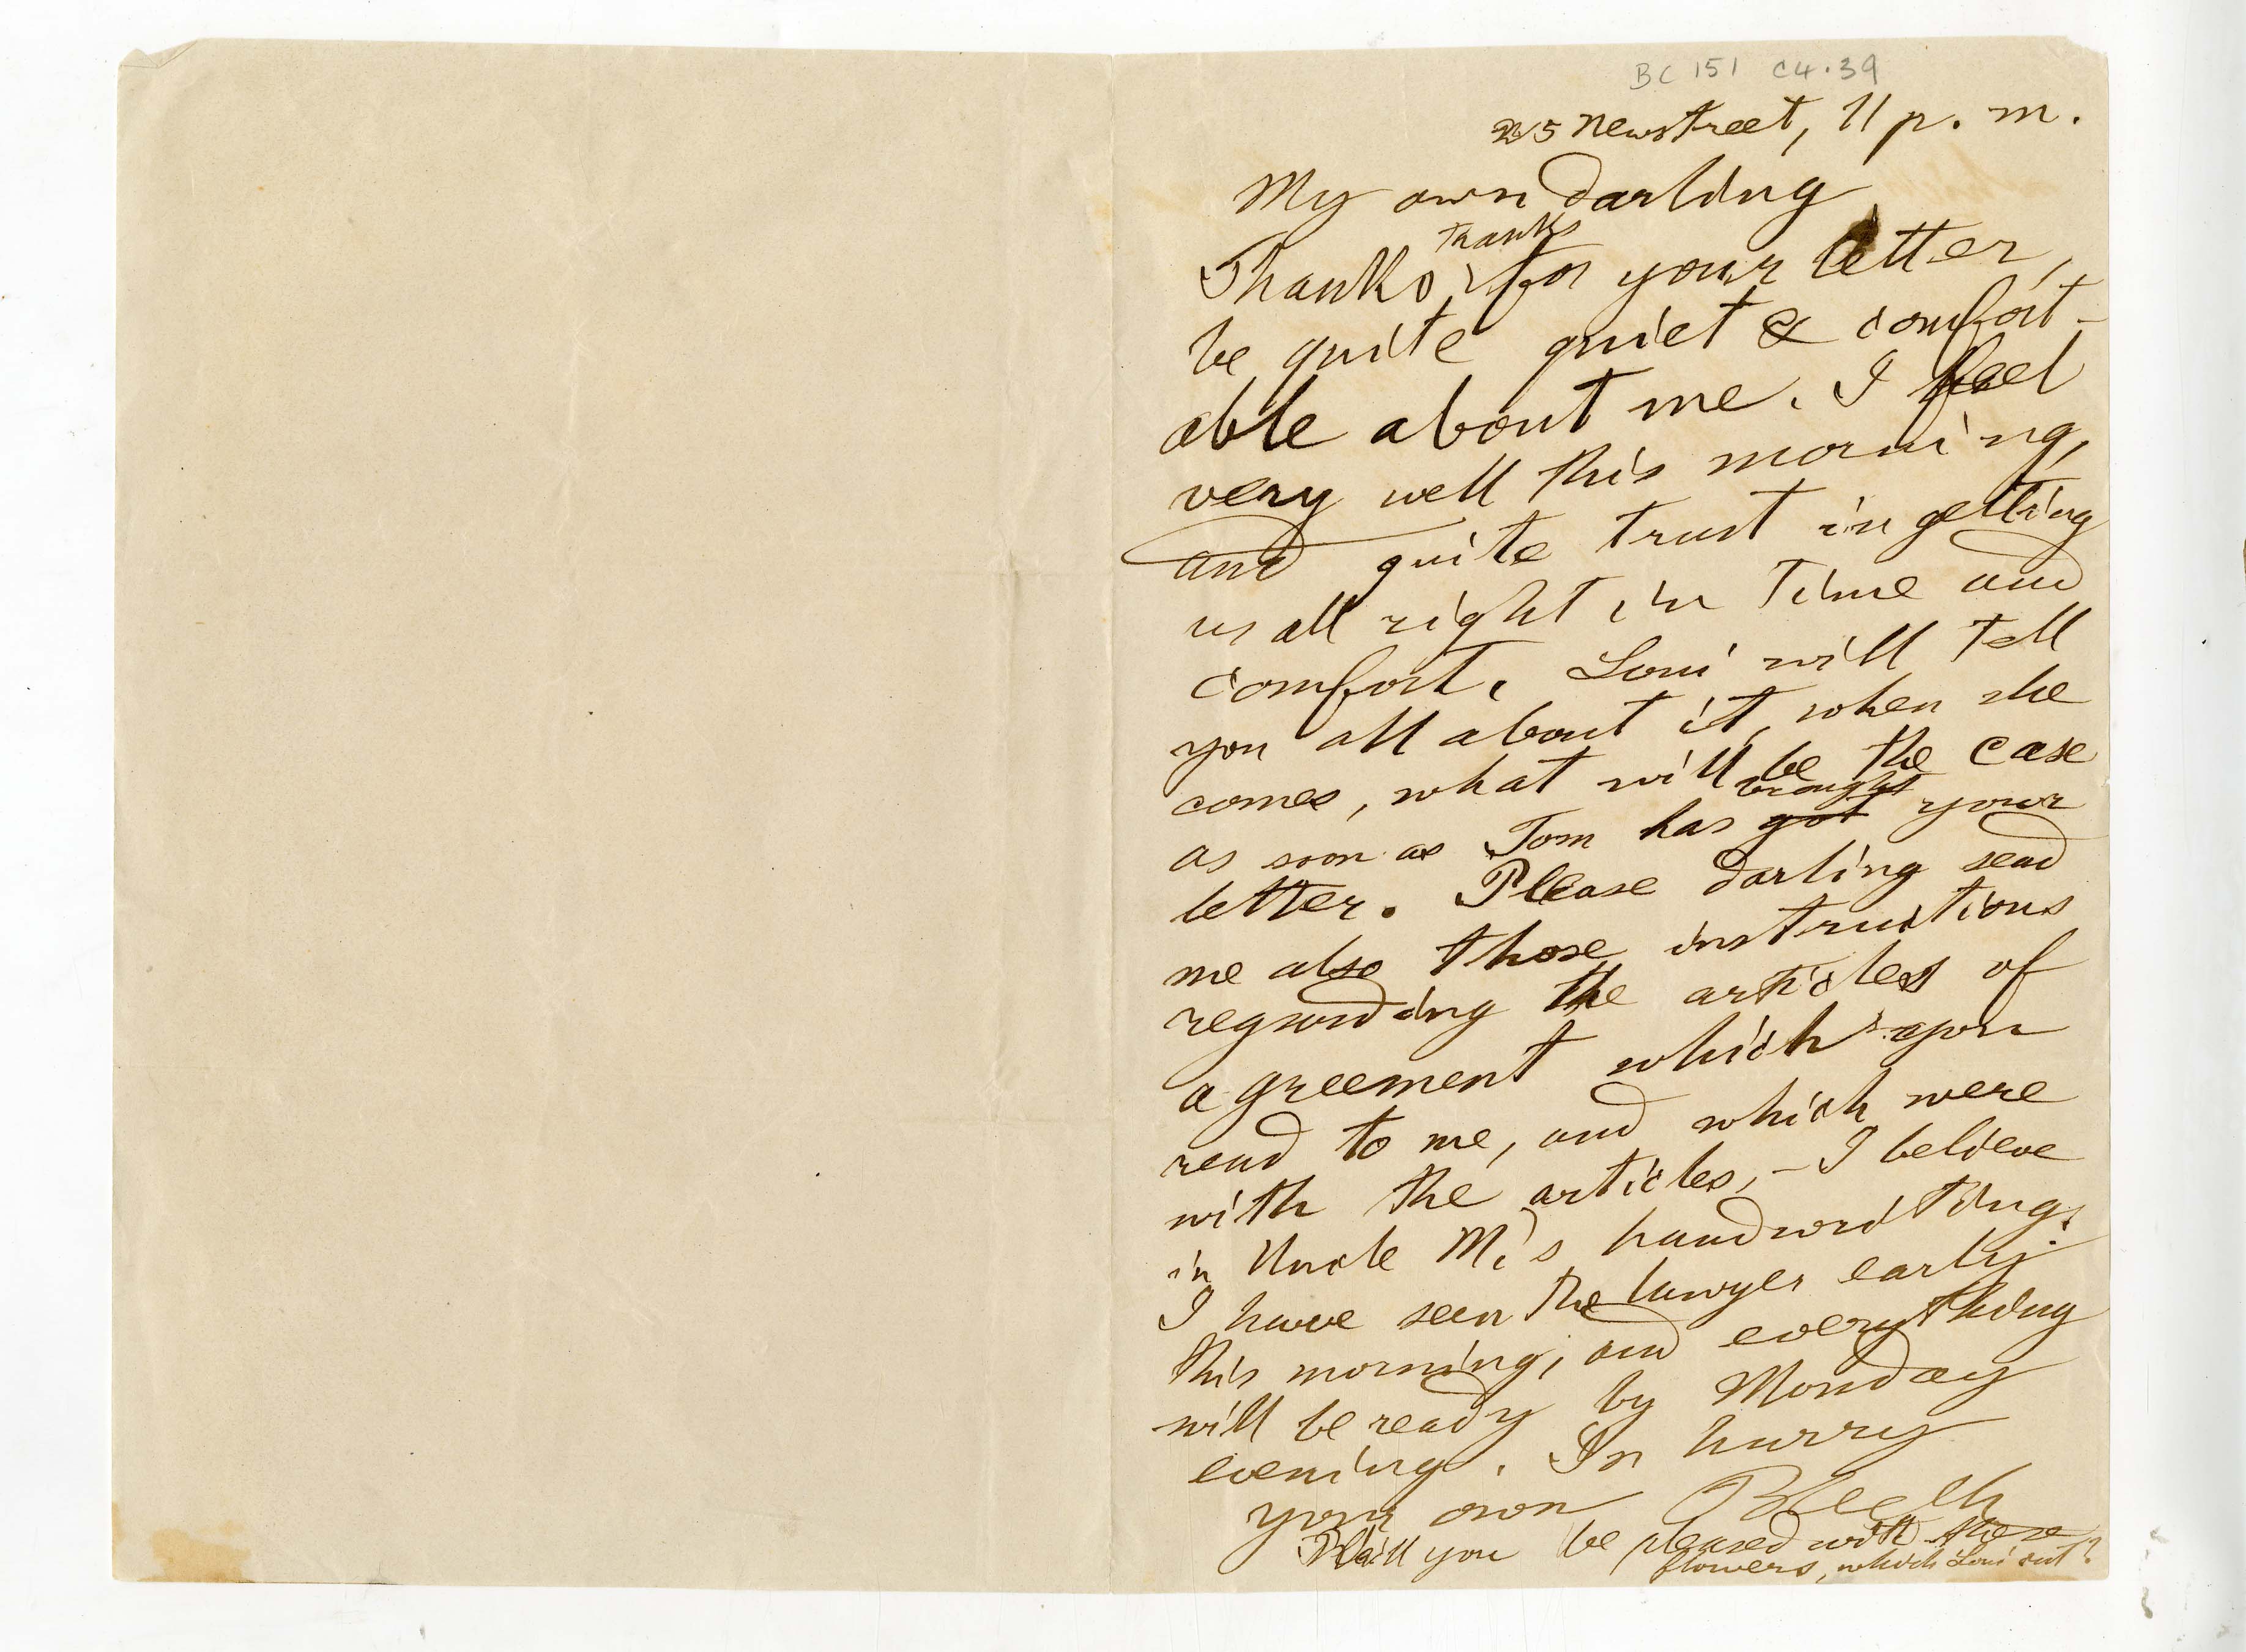 BC 151 C4.39
25 Newstreet, 11 p. m.
My own darling
Thanks
Thanks, for your letter,
be quite quiet & comfort-
able about me. I feel
very well this morning,
and quite trust in getting
us all right in time and
comfort. Loui will tell
you all about it, when she
comes, what will be the case
brought
as soon as Tom has got your
letter. Please darling send
me also those instructions
regarding the articles of
agreement which you
read to me, and which were
with the articles, - I believe
in Uncle M.'s handwriting.
I have seen the lawyer early
this morning, and everything
will be ready by Monday
evening. In hurry
your own Bleek
Will you be pleased with these
flowers, which Loui cut?